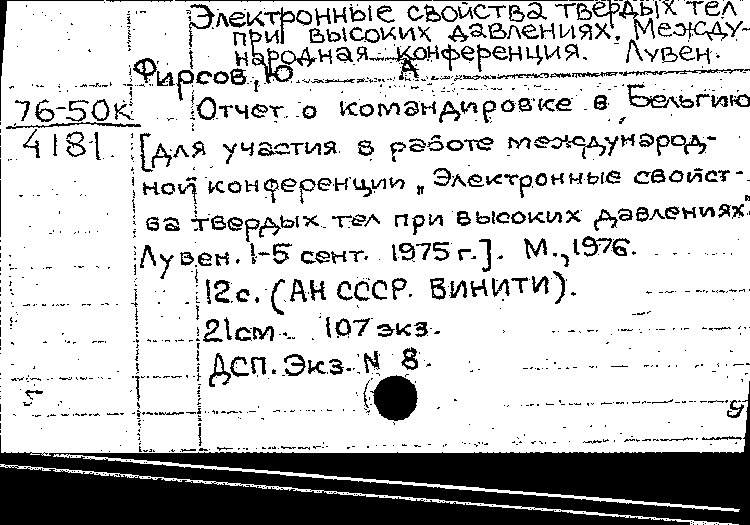 Электронные свойства твердых тел
при высоких давлениях. Между-
народная конференция. Лувен.
Фирсов, Ю А
76-50к Отчет о командировке в Бельгию
4181 [для участия в работе международ-
ной конференции „Электронные свойст-
ва твердых тел при высоких давлениях"
Лувен. 1-5 сент. 1975 г.]. М., 1976.
12с. (АН СССР. ВИНИТИ).
21см. 107 экз.
ДСП. Экз. N 8.